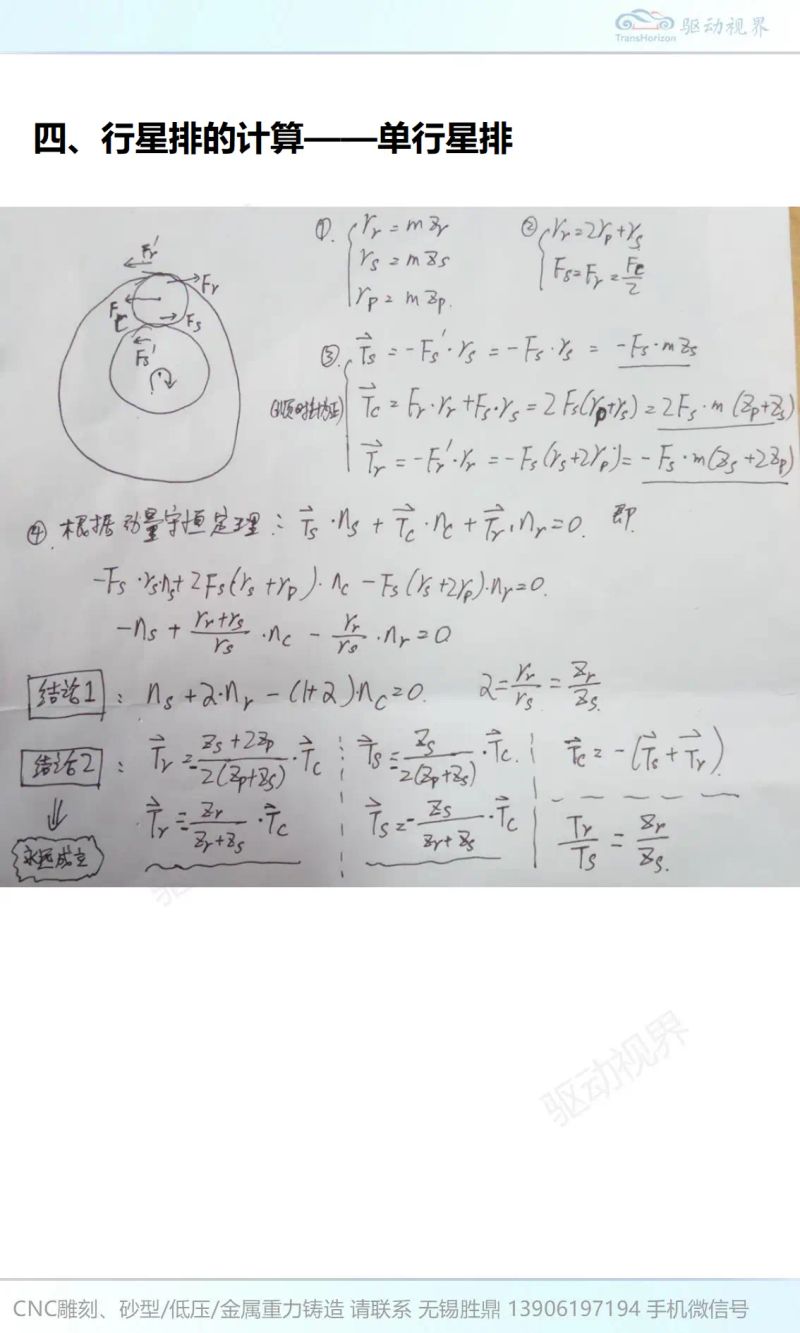 驱动视界
TransHorizon
四、行星排的计算——单行星排
Fr'
Fr
Fc
Fs
Fs'
①. { rr = m zr
rs = m zs
rp = m zp.
② { rr = 2rp + rs
Fs = Fr = Fc/2
③. { T⃗s = -Fs'·rs = -Fs·rs = -Fs·m zs
(以顺时针为正)
T⃗c = Fr·rr + Fs·rs = 2Fs(rp+rs) = 2Fs·m(zp+zs)
T⃗r = -Fr'·rr = -Fs(rs+2rp) = -Fs·m(zs+2zp)
④. 根据动量守恒定理: T⃗s·ns + T⃗c·nc + T⃗r·nr = 0. 即
-Fs·rs·ns + 2Fs(rs+rp)·nc - Fs(rs+2rp)·nr = 0.
-ns + (rr+rs)/rs·nc - rr/rs·nr = 0
结论1: ns + 2·nr - (1+2)·nc = 0. 2 = rr/rs = zr/zs.
结论2: T⃗r = -(zs+2zp)/2(zp+zs)·T⃗c T⃗s = -zs/2(zp+zs)·T⃗c. T⃗c = -(T⃗s + T⃗r)
⇓ T⃗r = -zr/(zr+zs)·T⃗c T⃗s = -zs/(zr+zs)·T⃗c Tr/Ts = zr/zs.
永远成立
驱动视界
CNC雕刻、砂型/低压/金属重力铸造 请联系 无锡胜鼎 13906197194 手机微信号